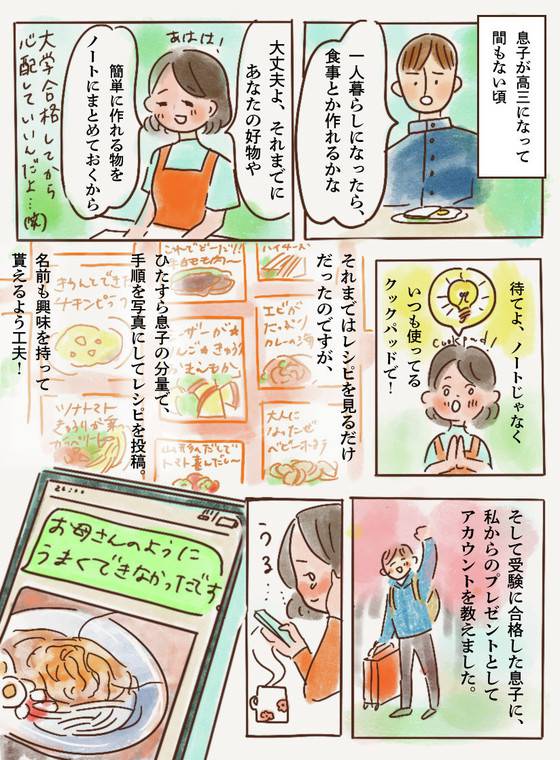 息子が高三になって
間もない頃
一人暮らしになったら、
食事とか作れるかな
大丈夫よ、それまでに
あなたの好物や
簡単に作れる物を
ノートにまとめておくから
あはは!
大学合格してから
心配していいんだよ…(笑)
待てよ、ノートじゃなく
いつも使ってる
クックパッドで!
cookpad!
それまではレシピを見るだけ
だったのですが、
ひたすら息子の分量で、
手順を写真にしてレシピを投稿。
名前も興味を持って
貰えるよう工夫!
エビが
たっぷり
カレーの海
チキンピラフ
ツナトマト
大人に
トマト蒸しだし〜
そして受験に合格した息子に、
私からのプレゼントとして
アカウントを教えました。
うる…
お母さんのように
うまくできなかったです